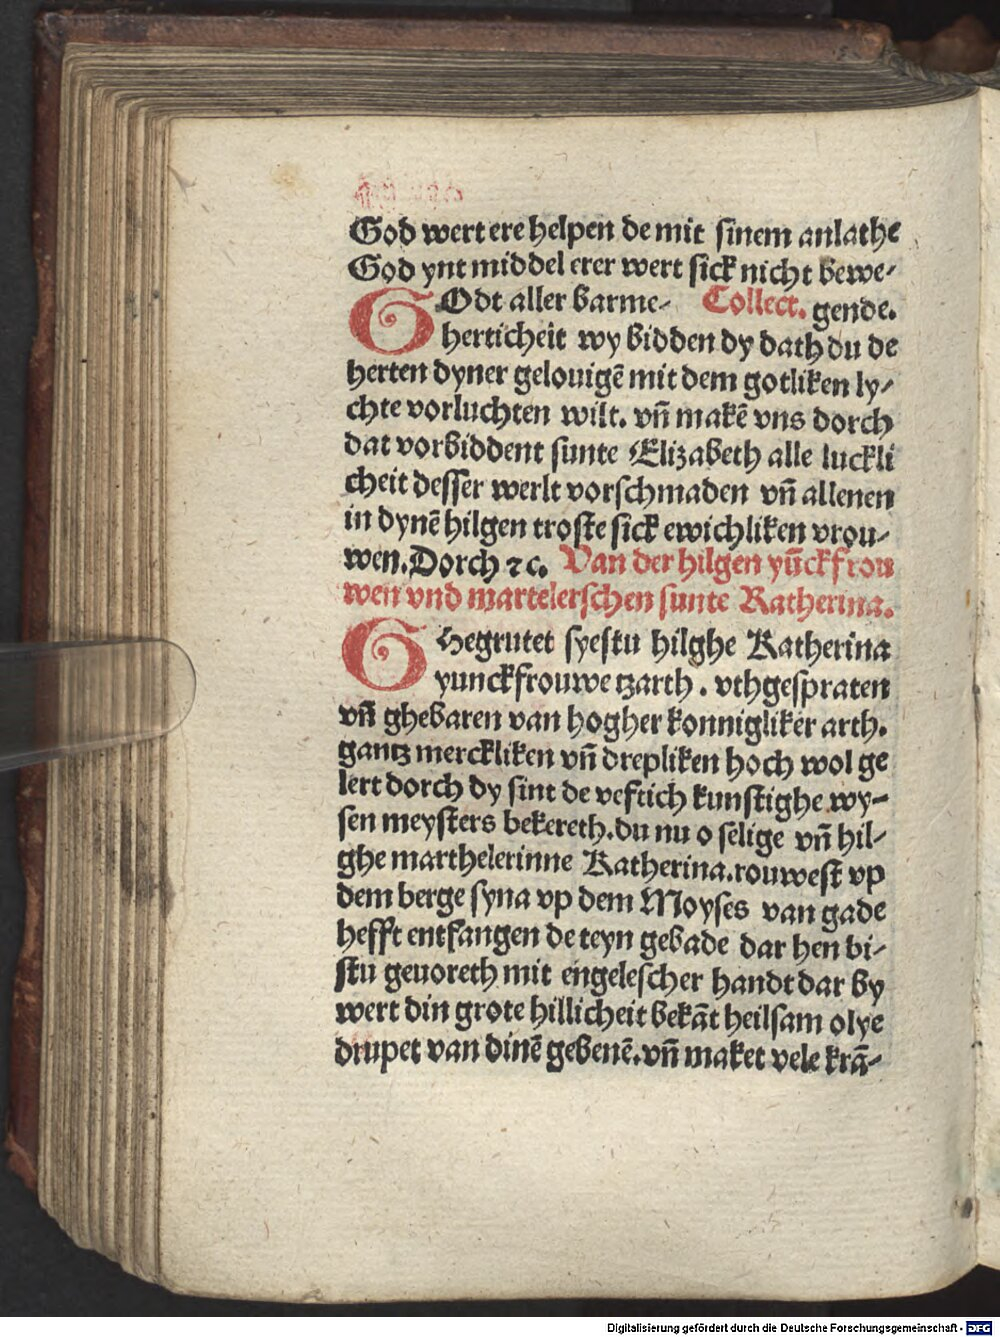 God wert ere helpen de mit sinem anlathe
God ynt middel erer wert sick nicht bewe-
GOdt aller barme- Collect. gende.
herticheit wy bidden dy dath du de
herten dyner gelouigē mit dem gotliken ly-
chte vorluchten wilt. vñ makē vns dorch
dat vorbiddent sunte Elizabeth alle luckli
cheit desser werlt vorschmaden vñ allenen
in dynē hilgen troste sick ewichliken vrou-
wen. Dorch ⁊c. Van der hilgen yūckfrou
wen vnd martelerschen sunte Katherina.
GHegrutet syestu hilghe Katherina
yunckfrouwe tzarth. vthgespraten
vñ ghebaren van hogher konnigliker arth.
gantz merckliken vñ drepliken hoch wol ge
lert dorch dy sint de veftich kunstighe wy-
sen meysters bekereth. du nu o selige vñ hil-
ghe marthelerinne Katherina. rouwest vp
dem berge syna vp dem Moyses van gade
hefft entfangen de teyn gebade dar hen bi-
stu geuoreth mit engelescher handt dar by
wert din grote hillicheit bekāt heilsam olye
drupet van dinē gebenē. vñ maket vele krā-
Digitalisierung gefördert durch die Deutsche Forschungsgemeinschaft - DFG